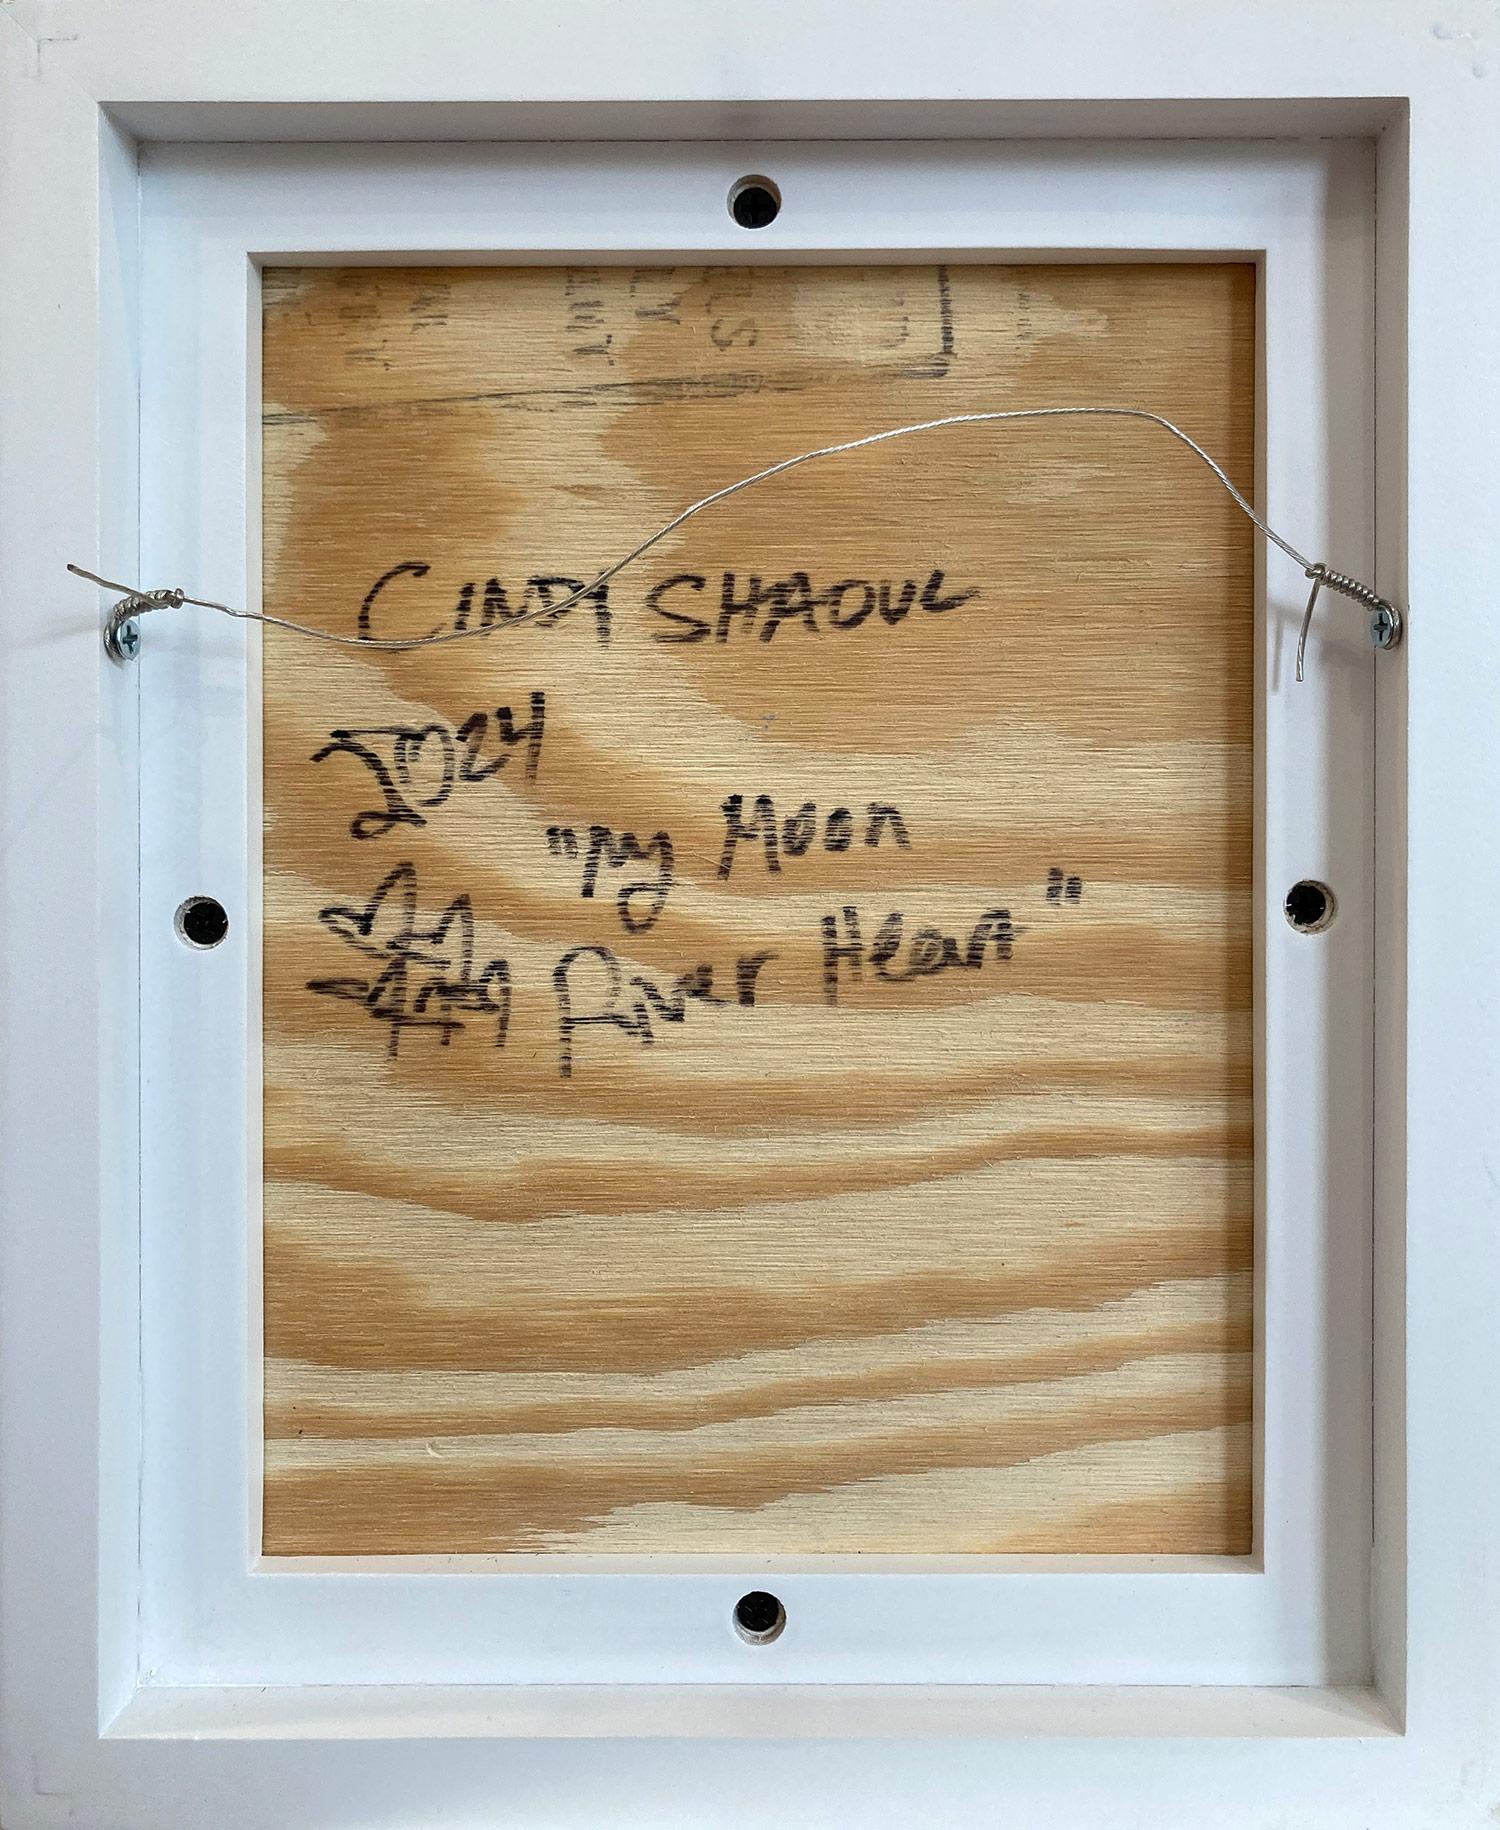 CINDY SHAOUL
2024
"My Moon
River Heart"